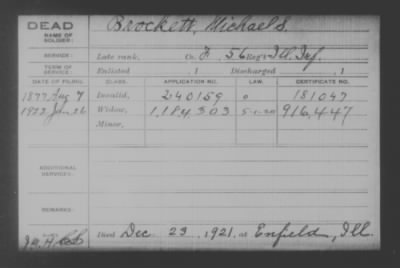 DEAD
NAME OF SOLDIER:
Brockett, Michael S.
SERVICE: Late rank, Co. A, 56 Reg't Ill. Inf.
TERM OF SERVICE: Enlisted , 1 Discharged , 1
DATE OF FILING. CLASS. APPLICATION NO. LAW. CERTIFICATE NO.
1877 Aug 7 Invalid, 240159 181047
1922 Jan. 26 Widow, 1,184,303 5-1-20 916,447
Minor,
ADDITIONAL SERVICES:
REMARKS:
Died Dec 23, 1921, at Enfield, Ill.